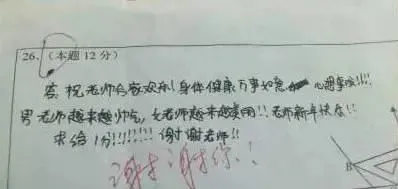 26.（本题 12 分）
答:祝老师合家欢乐!身体健康 万事如意 心想事成!!!!
男老师越来越帅气,女老师越来越美丽!!老师新年快乐!!
求给1分!!!!!!!! 谢谢老师!!
谢谢你!!
B